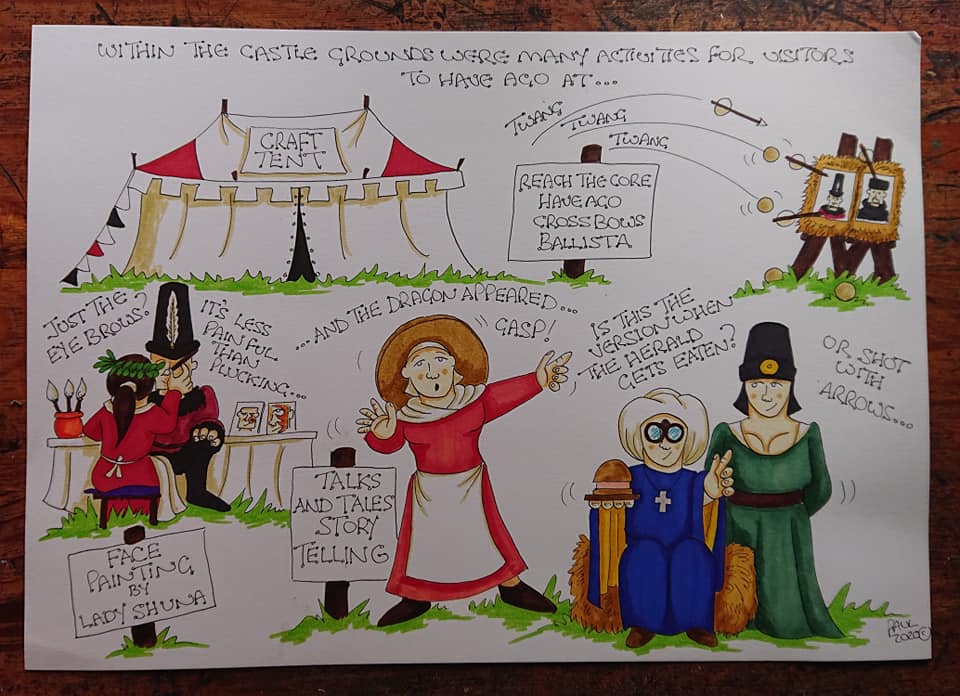 WITHIN THE CASTLE GROUNDS WERE MANY ACTIVITIES FOR VISITORS
TO HAVE AGO AT...
CRAFT
TENT
TWANG
TWANG
TWANG
REACH THE CORE
HAVE AGO
CROSSBOWS
BALLISTA
JUST THE
EYE BROWS?
IT'S LESS
PAINFUL
THAN
PLUCKING...
...AND THE DRAGON APPEARED...
GASP!
IS THIS THE
VERSION WHEN
THE HERALD
GETS EATEN?
OR SHOT
WITH
ARROWS...
TALKS
AND TALES
STORY
TELLING
FACE
PAINTING
BY
LADY SHUNA
PAUL
2020©